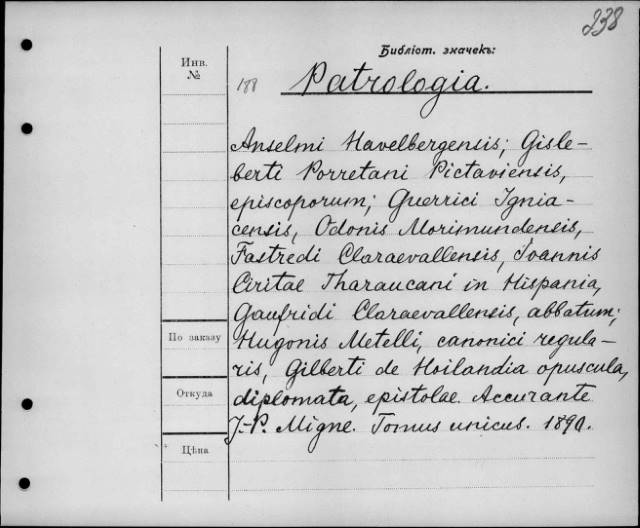 238
Библіот. значекъ:
Инв.
№
188
Patrologia.
Anselmi Havelbergensis; Gisle-
berti Porretani Pictaviensis,
episcoporum; Guerrici Ignia-
censis, Odonis Morimundensis,
Fastredi Claraevallensis, Joannis
Ciritae Tharaucani in Hispania,
Gaufridi Claraevallensis, abbatum;
Hugonis Metelli, canonici regula-
ris, Gilberti de Hoilandia opuscula,
diplomata, epistolae. Accurante
J.-P. Migne. Tomus unicus. 1890.
По заказу
Откуда
Цѣна